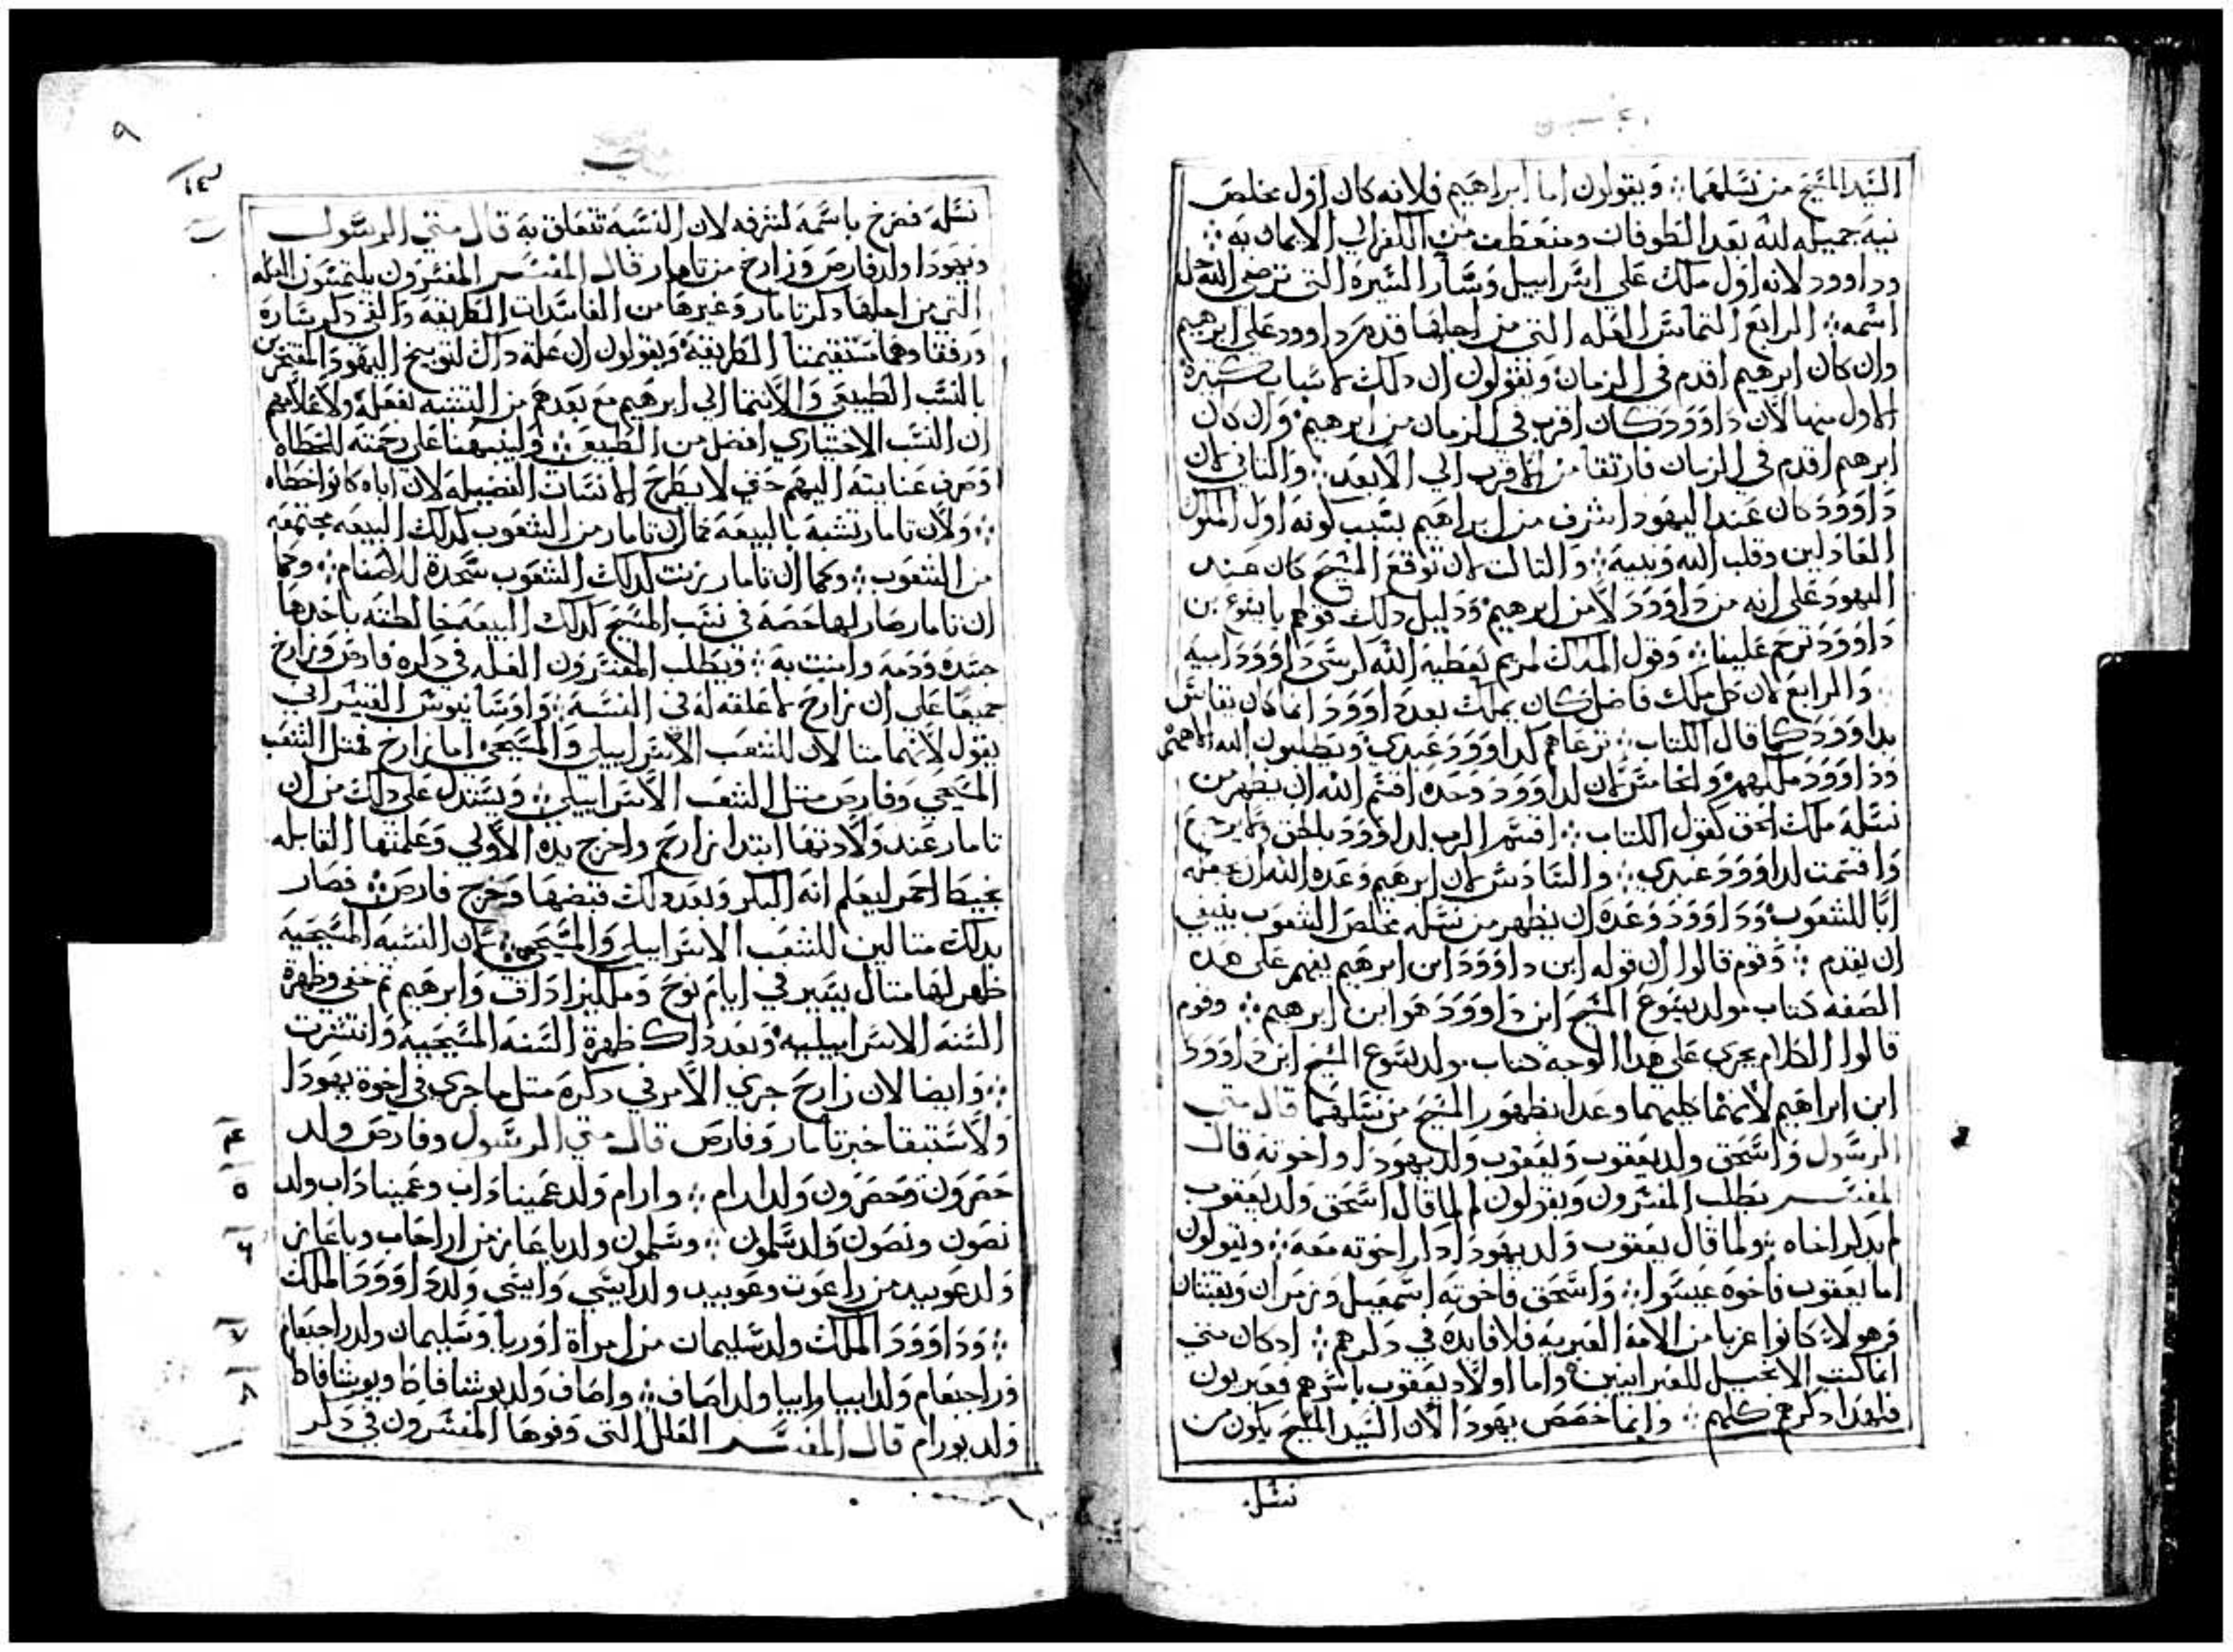 السَيد المسَيحَ من نسَلهَما ⁘ وَيقولون اما ابراهَيم فلانه كان اول مخلصَ
نيه جميله لله بَعَد الطوفان ومنعَطف من الكفر الي الايمان به ⁘
وداوود لانه اول ملك عَلي اسَراييل وَسَار السَيرة التي ترضي الله
اسَمه ⁘ الرابَع التماسَ العَله التي من اجلهَا قدم داوود عَلي ابرهيم
وان كان ابرهيم اقدم في الزمان وَيقولون ان دلك لاسَباب كتيرة
الاول منها لان دَاوَوَد كان اقرب في الزمان من ابرهيم وَان كان
ابرهم اقدم في الزمان فارتقا من الاقرب الي الابعَد ⁘ وَالتاني لان
دَاوَوَد كان عَند اليهود اشرف من ابراهَيم بسَبب كونه اول الملوك
العَادلين وقلب الله وَنبيه ⁘ وَالتالت لان توقعَ المسَيح كان عَند
اليهود عَلي انه من دَاوَوَد لا من ابرهيم وَدليل دلك قولهم يا يسَوعَ بن
دَاوَوَد ترحم عَلينا ⁘ وَقول الملاك لمريم يَعَطيه الله كرسَي دَاوَوَد ابيه
⁘ وَالرابعَ لان كل ملك فاضل كان يملك بعَد دَاوَوَد انما كان يقاسَ
بداوَوَد كما قال الكتاب ⁘ نرعَاهم كداوَوَد عَبدي وَيطلبون الله الاههم
وَداوَوَد ملكهم وَالخامسَ لان لداوَوَد وَحَده اقسَم الله ان يظهر من
نسَله ملك الحق كقول الكتاب ⁘ اقسَم الرب لداوَوَد بالحق وَلا يرجعَ
وَاقسَمت لداوَوَد عَبدي ⁘ وَالسَادسَ لان ابرهيم وَعَده الله ان يجعَله
ابًا للشعَوب وَدَاوَوَد وَعَده ان يظهر من نسَله مخلصَ الشعَوب ينبغي
ان يقدم ⁘ وَقوم قالوا ان قوله ابن داوَوَد ابن ابرهَيم يفهم عَلي هَده
الصَفه كتاب مولد يسَوعَ المسَيحَ ابن دَاوَوَد هَوَ ابن ابرهيم ⁘ وقوم
قالوا الكلام يجري عَلي هَدا الوَجه كتاب مولد يسَوع المسَيح ابن دَاوَوَد
ابن ابراهَيم لانهمَا كليهما وعَدا بظهَور المسَيحَ من نسَلهَما قال متي
الرسَول وَاسَحَق ولد يَعَقوب وَيَعَقوب وَلد يهوَدا واخوَته قال
المفسَر يطلب المفسَرون وَيقولون لم لما قال اسَحَق وَلد يَعَقوب
لم يدكر اخاه ⁘ ولما قال يعَقوب وَلد يهَودا دكر اخوته مَعَه ⁘ وَيقولون
اما يَعَقوب فاخوه عَيسَوا ⁘ وَاسَحَق فاخوته اسَمَعَيل وَزمرَان وَيقشان
وَهَولاَء كانوا غربا من الامة العَبريه فلا فايده في دكرهم ⁘ ادكان متي
انما كتب الانجيل للعَبرانيين وَاما اولاَد يَعَقوب باسَرهم فعَبريون
فلهَدا دكرهم كلهم ⁘ وَانما خصَصَ يهَودا لان السَيد المسَيحَ يكون من
نسَل
٩
نسَله فصَرخ باسَمه لشرفه لان النسَبَه تتعَلق به قال متي الرسَول
وَيهَودا ولد فارصَ وَزارخ من تامار قال المفسَر المفسَرون يلتمسَون العَله
التي من اجلهَا دكر تامار وَغيرهَا من الفاسَدات الطريقه وَالغي دكر سَارة
وَرفقا وهَما مسَتقيمتا الطريقه وَيقولون ان عَلة داك لتوبيخ اليهَود المفتخرين
بالنسَب الطبيعَي وَالانتما الي ابرهيم مَعَ بَعَدهم من التشبه بفعَله وَلاعَلامهم
ان النسَب الاختياري افضل من الطبيعَي ⁘ وَلينبهَنا عَلي رحَمته للخطاه
وَصَرف عَنايته اليهم حَتي لا يطرح الانسَان الفضيلَه لان اباه كانوا خطاه
⁘ وَلان تامار تشبَه بالبيعَه كما ان تامار من الشعَوب كدلك البيعَه مجتمعَه
من الشعَوب ⁘ وكما ان تامار زنت كدلك الشعَوب سَجدة للاصَنام ⁘ وكما
ان تامار صَار لهَا حَصَه في نسَب المسَيح كدلك البيعَه خالطته باخدهَا
جسَده وَدمه وامنت به ⁘ وَيطلب المفسَرون العَله في دكره فارصَ وَزارخ
جميعًا عَلي ان زارخ لا عَلقه له في النسَبَه ⁘ وَاوسَانيوسَ القيسَراني
يقول لانهما متالان للشعَب الاسَراييلي وَالمسَيحَي اما زارخ فمتل الشعَب
المسَيحَي وَفارصَ متل الشعَب الاسَراييلي ⁘ وَيسَتدل عَلي دلك من ان
تامار عَند وَلادتهَا ابتدا زارخ واخرج يده الاولي وَعَلمتها القابله
بخيط احَمر ليعَلم انه البكر وَبَعَد دلك قبضهَا وَخرج فارصَ ⁘ فصَار
بدلك متالين للشعَب الاسَراييلي وَالمسَيحَي ⁘ لان السَنه المسَيحَيه
ظهر لهَا متال يسَير في ايام نوحَ وَملكيزاداق وَابرهَيم تم خفي وظهرة
السَنه الاسَراييليه وَبَعَد داك ظهرة السَنه المسَيحَيه وَانتشرت
⁘ وَايضا لان زارخ جري الاَمر في دكره متل ما جري في اخوة يهَودا
وَلاسَتيفا خبر تامار وَفارصَ قال متي الرسَول وفارصَ ولد
حَصَرون وَحَصَرون وَلد ارام ⁘ وارام وَلد عَميناداب وعَميناداب ولد
نصَون ونصَون وَلد سَلمون ⁘ وسَلمون ولد باعَاز من اراحَاب وباعَاز
وَلد عَوبيد من راعَوت وعَوبيد ولد ايسَي وَايسَي وَلد دَاوَوَد الملك
⁘ وَدَاوَوَد الملك ولد سَليمان من امراة اوريا وَسَليمان ولد راحبعَام
وَراحبعَام وَلد ابيا وابيا ولد اصَاف ⁘ واصَاف وَلد يوشافاط ويوشافاط
وَلد يورام قال المفسَر العَلل التي وَفوهَا المفسَرون في دكر
٤
٥
٦
٧
٨